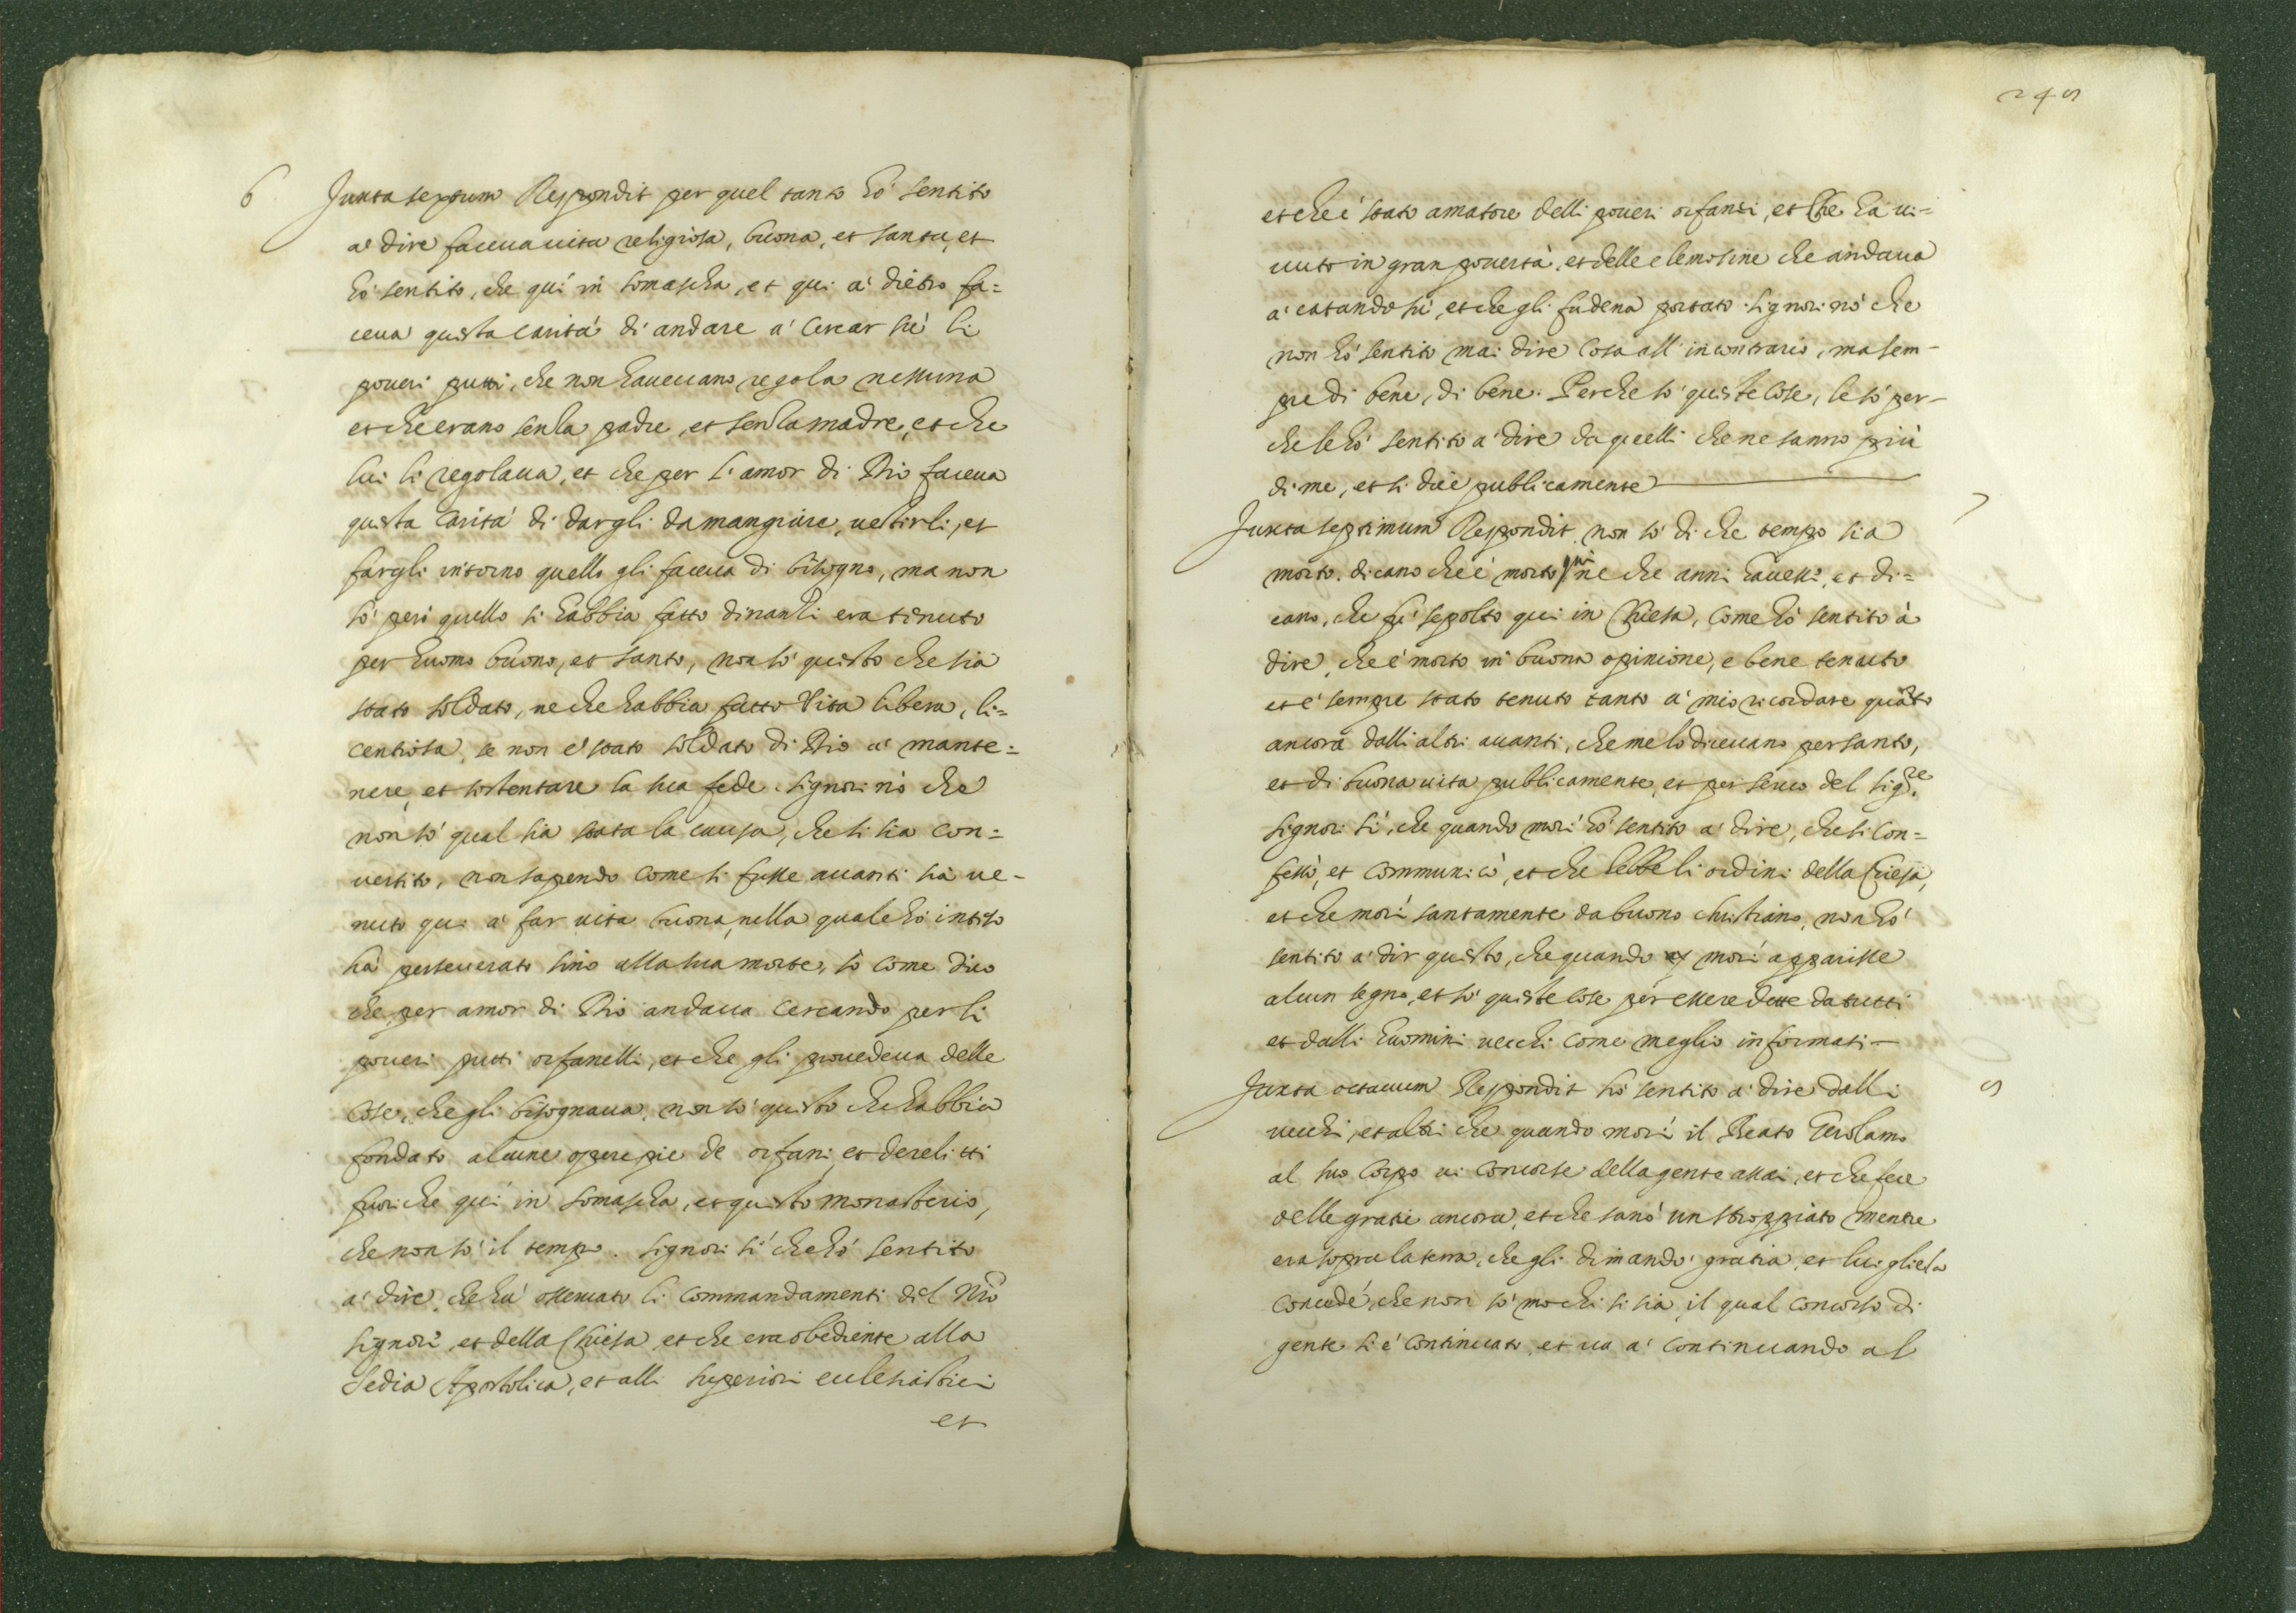 6
Juxta sextum Respondit per quel tanto hò sentito
à dire faceua uita religiosa, buona, et santa, et
hò sentito, che quì in somascha, et qui à dietro fa=
ceua questa carità di andare à cercar sù li
poueri putti, che non haueuano regola nessuna
et che erano senza padre, et senza madre, et che
lui li regolaua, et che per l'amor di Dio faceua
questa carità di dargli da mangiare, uestirli, et
fargli intorno quello gli faceua di bisogno, ma non
sò però quello si habbia fatto dinanzi era tenuto
per huomo buono, et santo, non sò questo che sia
stato soldato, ne che habbia fatto Vita libera, li=
centiosa, se non è stato soldato di Dio à mante=
nere, et sostentare la sua fede. signori nò che
non sò qual sia stata la causa, che si sia con=
uertito, non sapendo come si fusse auanti sia ue-
nuto qui à far uita buona, nella quale hò inteso
hà perseuerato sino alla sua morte, sò come dico
che per amor di Dio andaua cercando per li
poueri putti orfanelli, et che gli prouedeua delle
cose, che gli bisognaua, non sò questo che habbia
fondato alcune opere pie de orfani, et derelitti
fuori che quì in somascha, et questo monasterio,
che non sò il tempo. signori sì che hò sentito
à dire, che hà osseruato li commandamenti del Nrõ
signore, et della Chiesa, et che era obediente alla
sedia Apostolica, et alli superiori eclesiastici
et
245
et che è stato amatore delli poueri orfani, et che ha ui=
uuto in gran pouertà, et delle elemosine che andaua
à catando sù, et che gli fudena portato. signori nò che
non hò sentito mai dire cosa all' incontrario, ma sem-
pre di bene, di bene. Perche sò queste cose, le sò per-
che le hò sentito à dire da quelli che ne sanno più
di me, et si dice publicamente
7
Juxta septimum Respondit non sò di che tempo sia
morto. dicano che è morto quì ne che anni hauesse, et di=
cano, che fù sepolto qui in Chiesa, come hò sentito à
dire, che è morto in buona opinione, e bene tenuto
et è sempre stato tenuto tanto à mio ricordare quãto
ancora dalli altri auanti, che me lo diceuano per santo,
et di buona uita publicamente, et per seruo del sig.re
signori sì, che quando morì hò sentito à dire, che si con=
fessò, et communicò, et che hebbe li ordini della Chiesa,
et che morì santamente da buono christiano, non hò
sentito à dir questo, che quando morì apparisse
alcun segno, et sò queste cose per essere dette da tutti
et dalli huomini uecchi come meglio informati
Juxta octauum Respondit hò sentito à dire dalli
uecchi, et altri che quando morì il Beato Gerolamo
al suo corpo ui concorse della gente assai, et che fece
delle gratie ancora, et che sanò un stroppiato mentre
era sopra la terra, che gli dimandò gratia, et lui gliela
concedè, che non sò mo chi si sia, il qual concorso di
gente si è continuato, et ua à continuando al